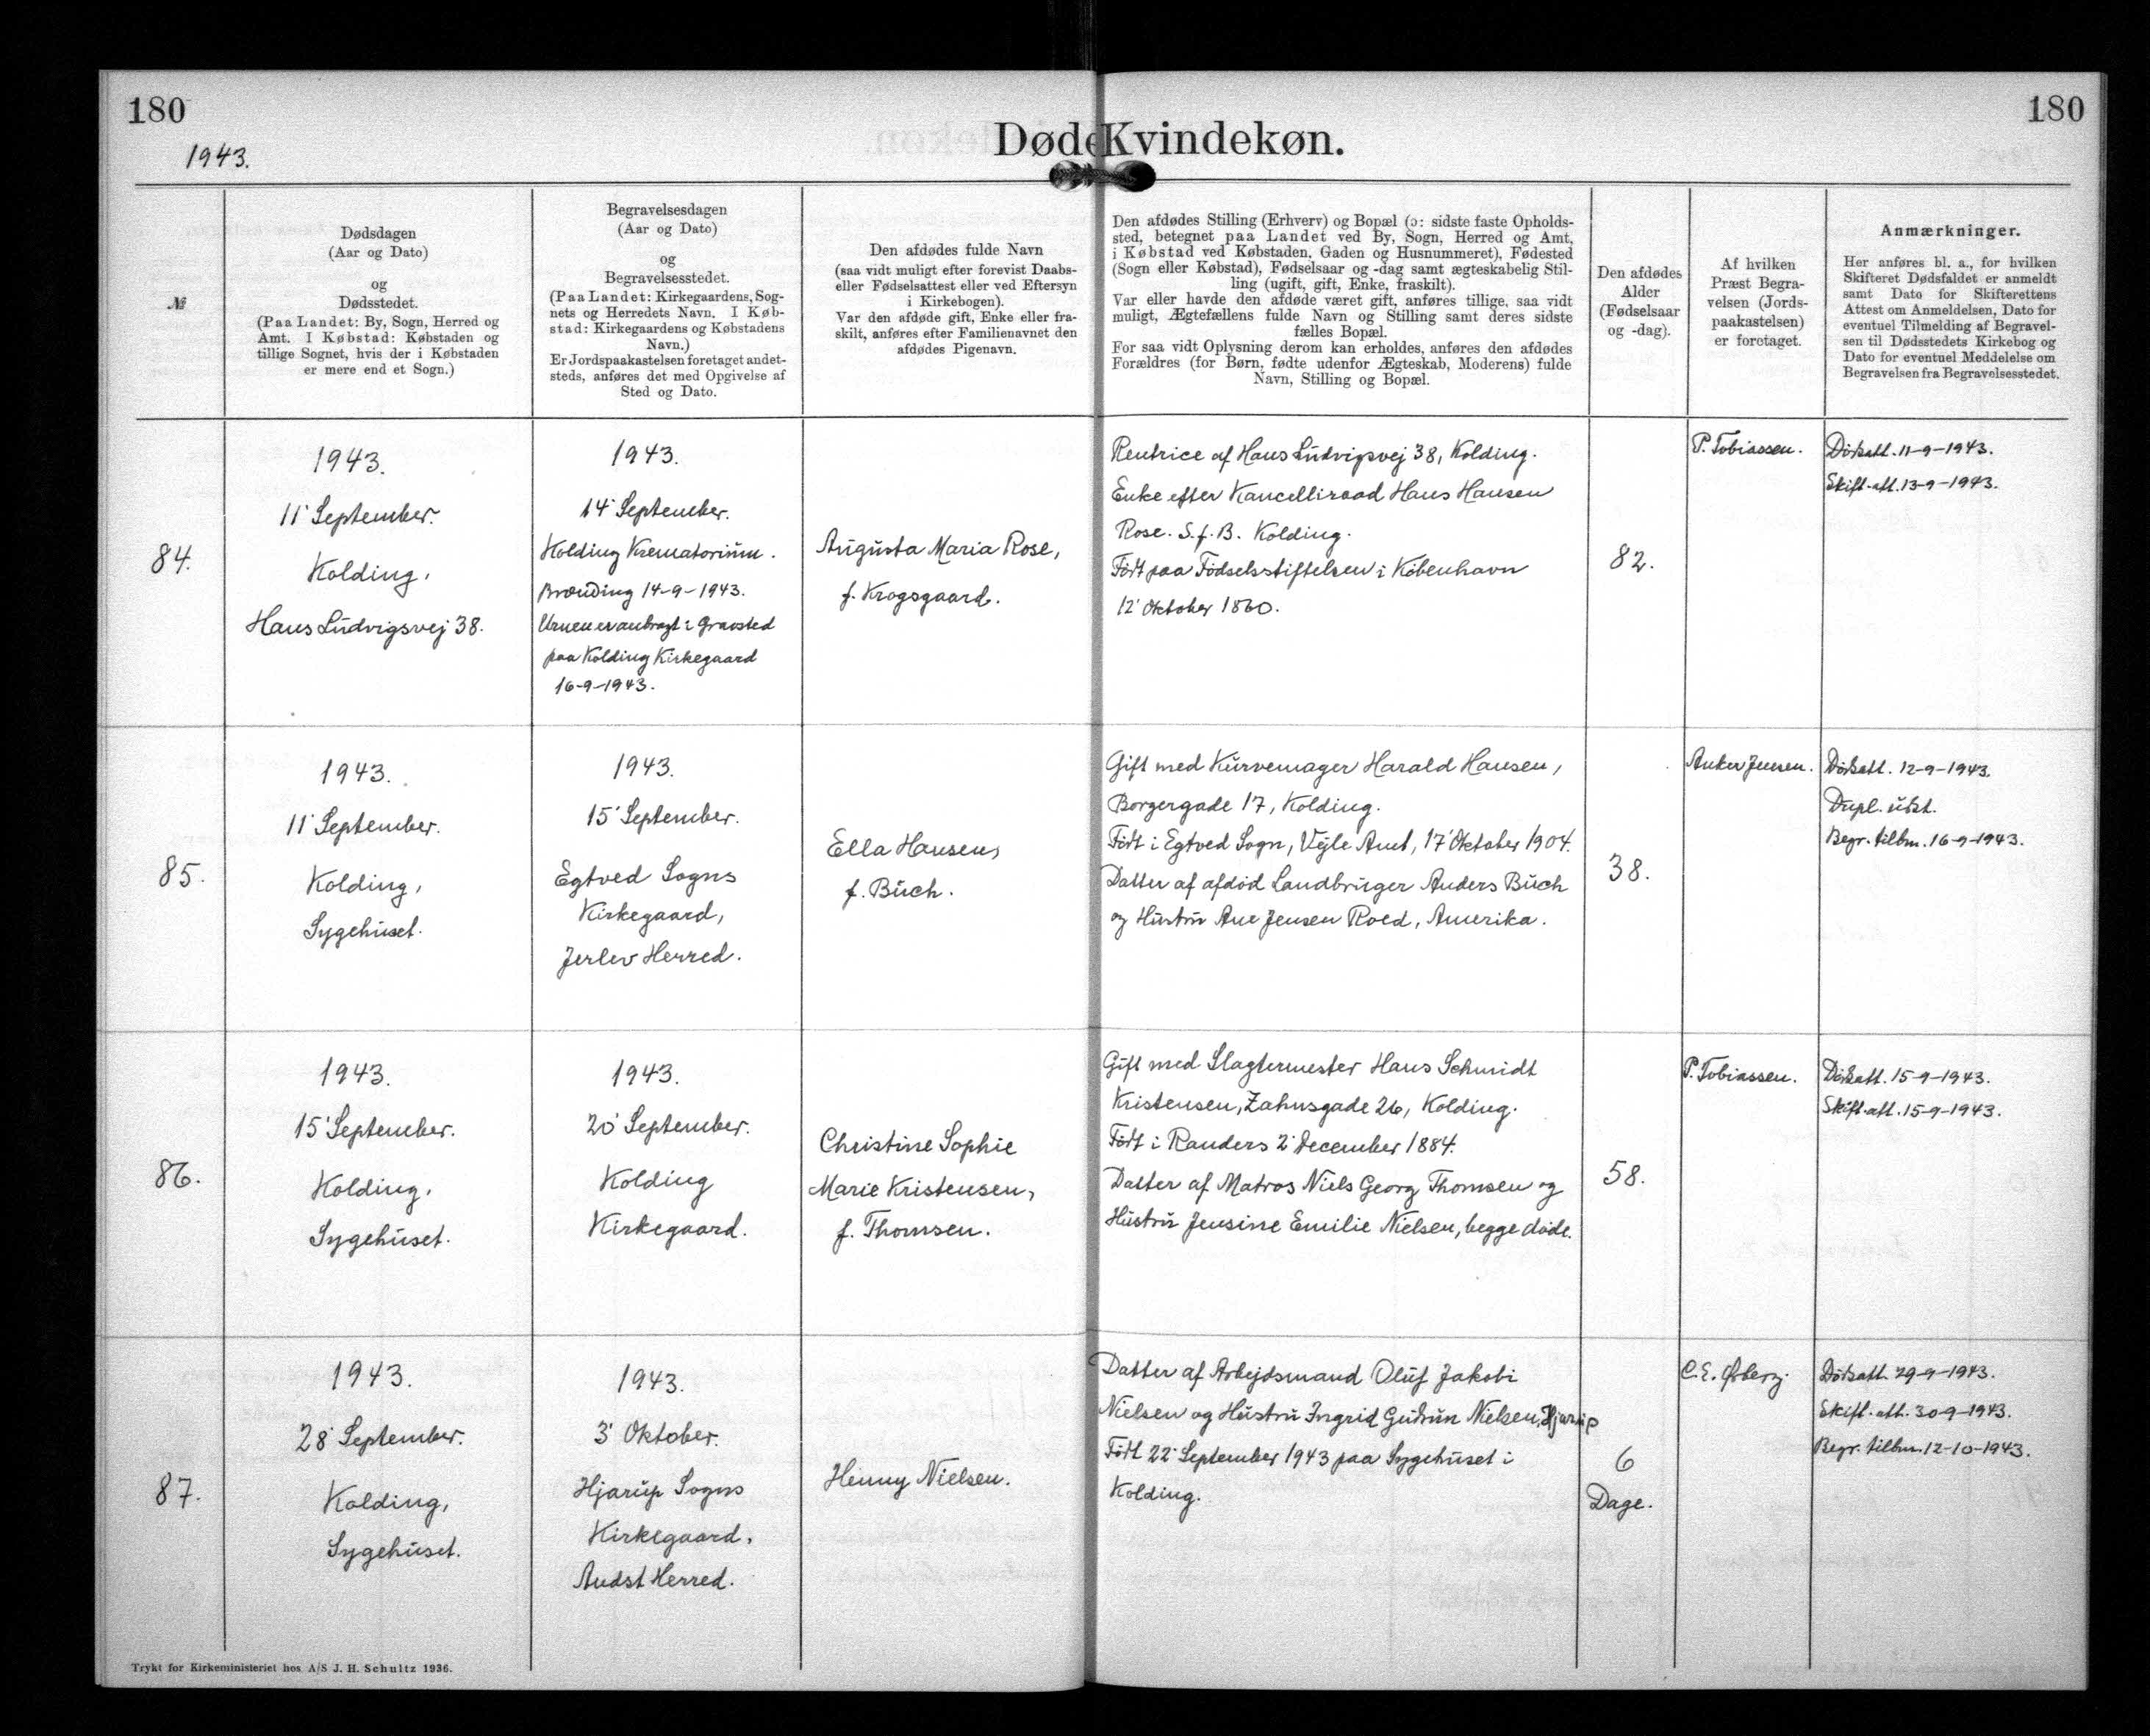 180
180
1943.
Døde Kvindekøn.
№
Dødsdagen
(Aar og Dato)
og
Dødsstedet.
(Paa Landet: By, Sogn, Herred og
Amt. I Købstad: Købstaden og
tillige Sognet, hvis der i Købstaden
er mere end et Sogn.)
Begravelsesdagen
(Aar og Dato)
og
Begravelsesstedet.
(Paa Landet: Kirkegaardens, Sog-
nets og Herredets Navn. I Køb-
stad: Kirkegaardens og Købstadens
Navn.)
Er Jordspaakastelsen foretaget andet-
steds, anføres det med Opgivelse af
Sted og Dato.
Den afdødes fulde Navn
(saa vidt muligt efter forevist Daabs-
eller Fødselsattest eller ved Eftersyn
i Kirkebogen).
Var den afdøde gift, Enke eller fra-
skilt, anføres efter Familienavnet den
afdødes Pigenavn.
Den afdødes Stilling (Erhverv) og Bopæl (ɔ: sidste faste Opholds-
sted, betegnet paa Landet ved By, Sogn, Herred og Amt,
i Købstad ved Købstaden, Gaden og Husnummeret), Fødested
(Sogn eller Købstad), Fødselsaar og -dag samt ægteskabelig Stil-
ling (ugift, gift, Enke, fraskilt).
Var eller havde den afdøde været gift, anføres tillige, saa vidt
muligt, Ægtefællens fulde Navn og Stilling samt deres sidste
fælles Bopæl.
For saa vidt Oplysning derom kan erholdes, anføres den afdødes
Forældres (for Børn, fødte udenfor Ægteskab, Moderens) fulde
Navn, Stilling og Bopæl.
Den afdødes
Alder
(Fødselsaar
og -dag).
Af hvilken
Præst Begra-
velsen (Jords-
paakastelsen)
er foretaget.
Anmærkninger.
Her anføres bl. a., for hvilken
Skifteret Dødsfaldet er anmeldt
samt Dato for Skifterettens
Attest om Anmeldelsen, Dato for
eventuel Tilmelding af Begravel-
sen til Dødsstedets Kirkebog og
Dato for eventuel Meddelelse om
Begravelsen fra Begravelsesstedet.
84.
1943.
11' September.
Kolding,
Hans Ludvigsvej 38.
1943.
14' September.
Kolding Krematorium.
Brænding 14-9-1943.
Urnen er anbragt i Gravsted
paa Kolding Kirkegaard
16-9-1943.
Augusta Maria Rose,
f. Krogsgaard.
Rentrice af Hans Ludvigsvej 38, Kolding.
Enke efter Kancelliraad Hans Hansen
Rose. S.f.B. Kolding.
Født paa Fødselsstiftelsen i København
12' Oktober 1860.
82.
P. Tobiassen.
Dødsatt. 11-9-1943.
Skift.att. 13-9-1943.
85.
1943.
11' September.
Kolding,
Sygehuset.
1943.
15' September.
Egtved Sogns
Kirkegaard,
Jerlev Herred.
Ella Hansen,
f. Buch.
Gift med Kurvemager Harald Hansen,
Borgergade 17, Kolding.
Født i Egtved Sogn, Vejle Amt, 17' Oktober 1904.
Datter af afdød Landbruger Anders Buch
og Hustru Ane Jensen Roed, Amerika.
38.
Anker Jensen.
Dødsatt. 12-9-1943.
Dupl. udst.
Begr. tilbm. 16-9-1943.
86.
1943.
15' September.
Kolding,
Sygehuset.
1943.
20' September.
Kolding
Kirkegaard.
Christine Sophie
Marie Kristensen,
f. Thomsen.
Gift med Slagtermester Hans Schmidt
Kristensen, Zahnsgade 26, Kolding.
Født i Randers 2' December 1884.
Datter af Matros Niels Georg Thomsen og
Hustru Jensine Emilie Nielsen, begge døde.
58.
P. Tobiassen.
Dødsatt. 15-9-1943.
Skift.att. 15-9-1943.
87.
1943.
28' September.
Kolding,
Sygehuset.
1943.
3' Oktober.
Hjarup Sogns
Kirkegaard,
Andst Herred.
Henny Nielsen.
Datter af Arbejdsmand Oluf Jakobi
Nielsen og Hustru Ingrid Gudrun Nielsen, Hjarup
Født 22' September 1943 paa Sygehuset i
Kolding.
6
Dage.
C. E. Østberg.
Dødsatt. 29-9-1943.
Skift.att. 30-9-1943.
Begr. tilbm. 12-10-1943.
Trykt for Kirkeministeriet hos A/S J. H. Schultz 1936.